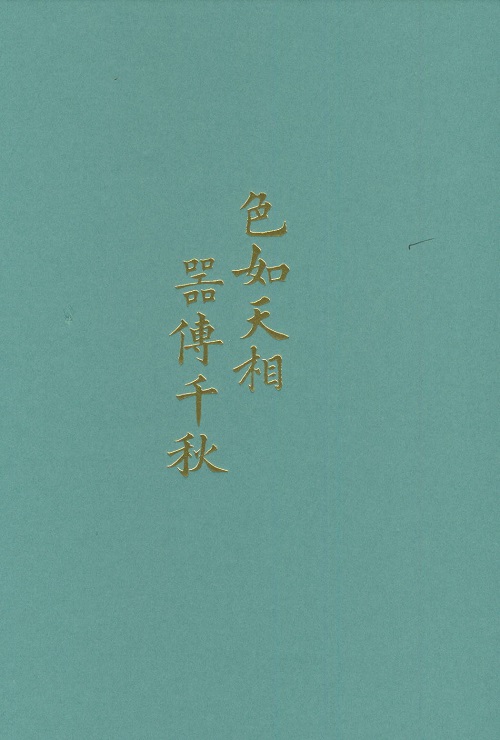 色如天相
器傳千秋